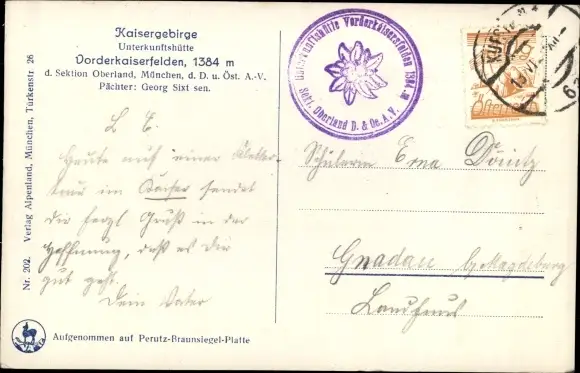 Kaisergebirge
Unterkunftshütte
Vorderkaiserfelden, 1384 m
d. Sektion Oberland, München, d. D. u. Öst. A.-V.
Pächter: Georg Sixt sen.
Unterkunftshütte Vorderkaiserfelden 1384 m
Sekt. Oberland D. & Oe. A. V.
KUFSTEIN
Österreich
L. E.
Heute auf einer Kletter-
tour im Kaiser sendet
dir herzl Gruß in der
Hoffnung, daß es Dir
gut geht
Dein Vater
Schülerin Erna
Gnadau b/Magdeburg
Nr. 202. Verlag Alpenland, München, Türkenstr. 26
Aufgenommen auf Perutz-Braunsiegel-Platte